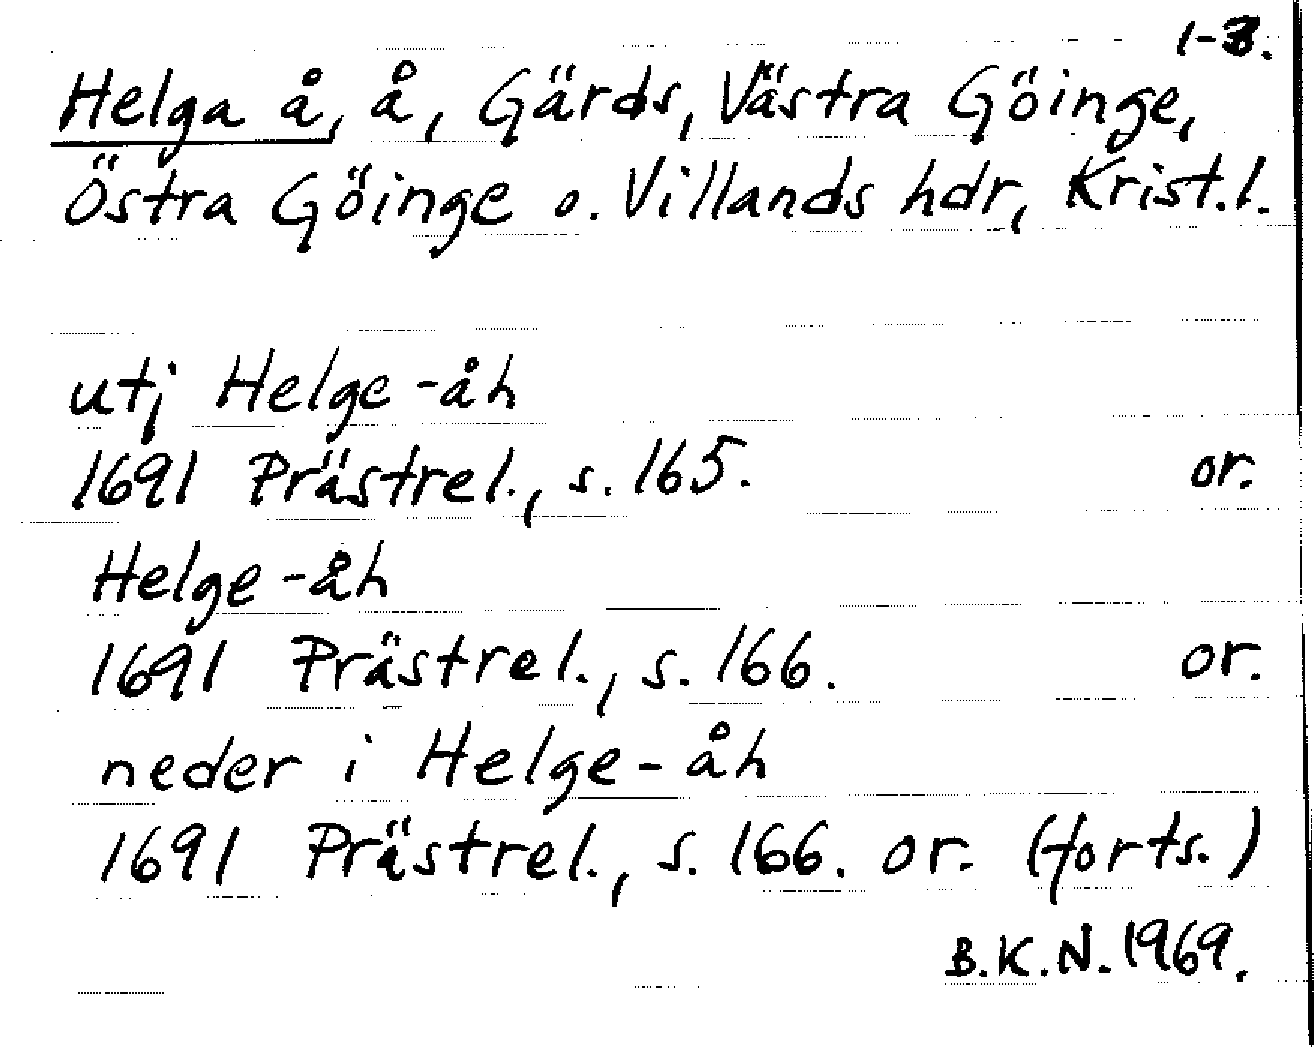 1-3.
Helga å, å, Gärds, Västra Göinge,
Östra Göinge o. Villands hdr, Krist.l.
utj Helge-åh
1691 Prästrel., s. 165. or.
Helge-åh
1691 Prästrel., s. 166. or.
neder i Helge-åh
1691 Prästrel., s. 166. or. (forts.)
B.K.N. 1969.